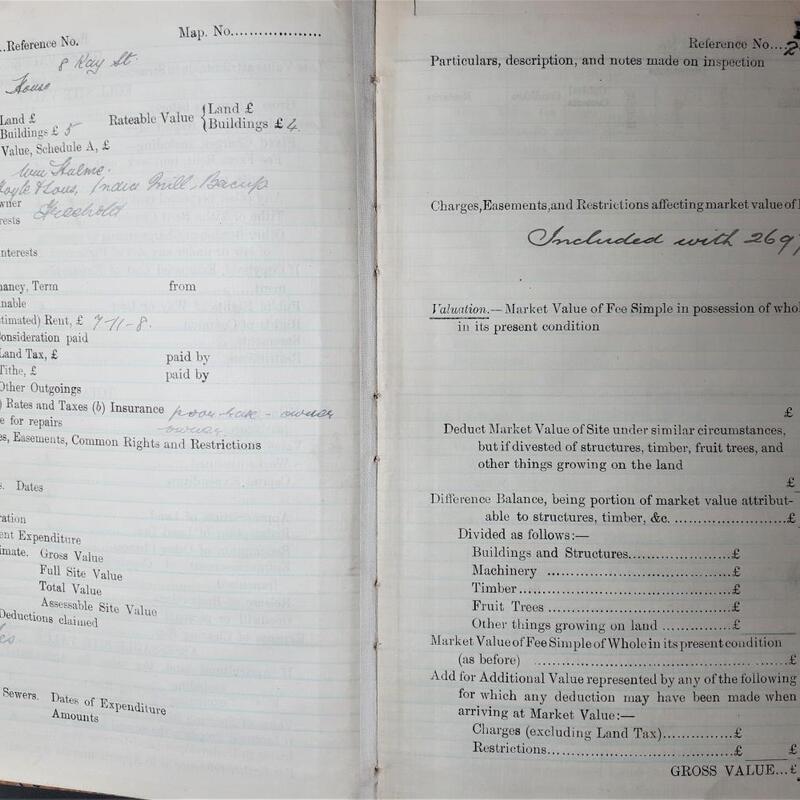 ..Reference No.
Map. No....................
8 Kay St.
House
Land £
Buildings £ 5
Rateable Value { Land £
Buildings £ 4
Value, Schedule A, £
Wm Hulme.
Hoyle & Sons, India Mill, Bacup
wner
Freehold
rests
nterests
nancy, Term
from
nable
timated) Rent, £ 7-11-8.
onsideration paid
Land Tax, £
paid by
Tithe, £
paid by
Other Outgoings
) Rates and Taxes (b) Insurance poor rate - owner
e for repairs owner
es, Easements, Common Rights and Restrictions
s. Dates
ration
ent Expenditure
imate. Gross Value
Full Site Value
Total Value
Assessable Site Value
Deductions claimed
Sewers. Dates of Expenditure
Amounts
Reference No...2
Particulars, description, and notes made on inspection
Charges, Easements, and Restrictions affecting market value of
Included with 269
Valuation.—Market Value of Fee Simple in possession of whol
in its present condition
£
Deduct Market Value of Site under similar circumstances,
but if divested of structures, timber, fruit trees, and
other things growing on the land
£
Difference Balance, being portion of market value attribut-
able to structures, timber, &c. ........................£
Divided as follows:—
Buildings and Structures....................£
Machinery ....................................£
Timber.........................................£
Fruit Trees ...................................£
Other things growing on land .............£
Market Value of Fee Simple of Whole in its present condition
(as before) ................................................£
Add for Additional Value represented by any of the following
for which any deduction may have been made when
arriving at Market Value:—
Charges (excluding Land Tax)..............£
Restrictions....................................£ £
GROSS VALUE...£